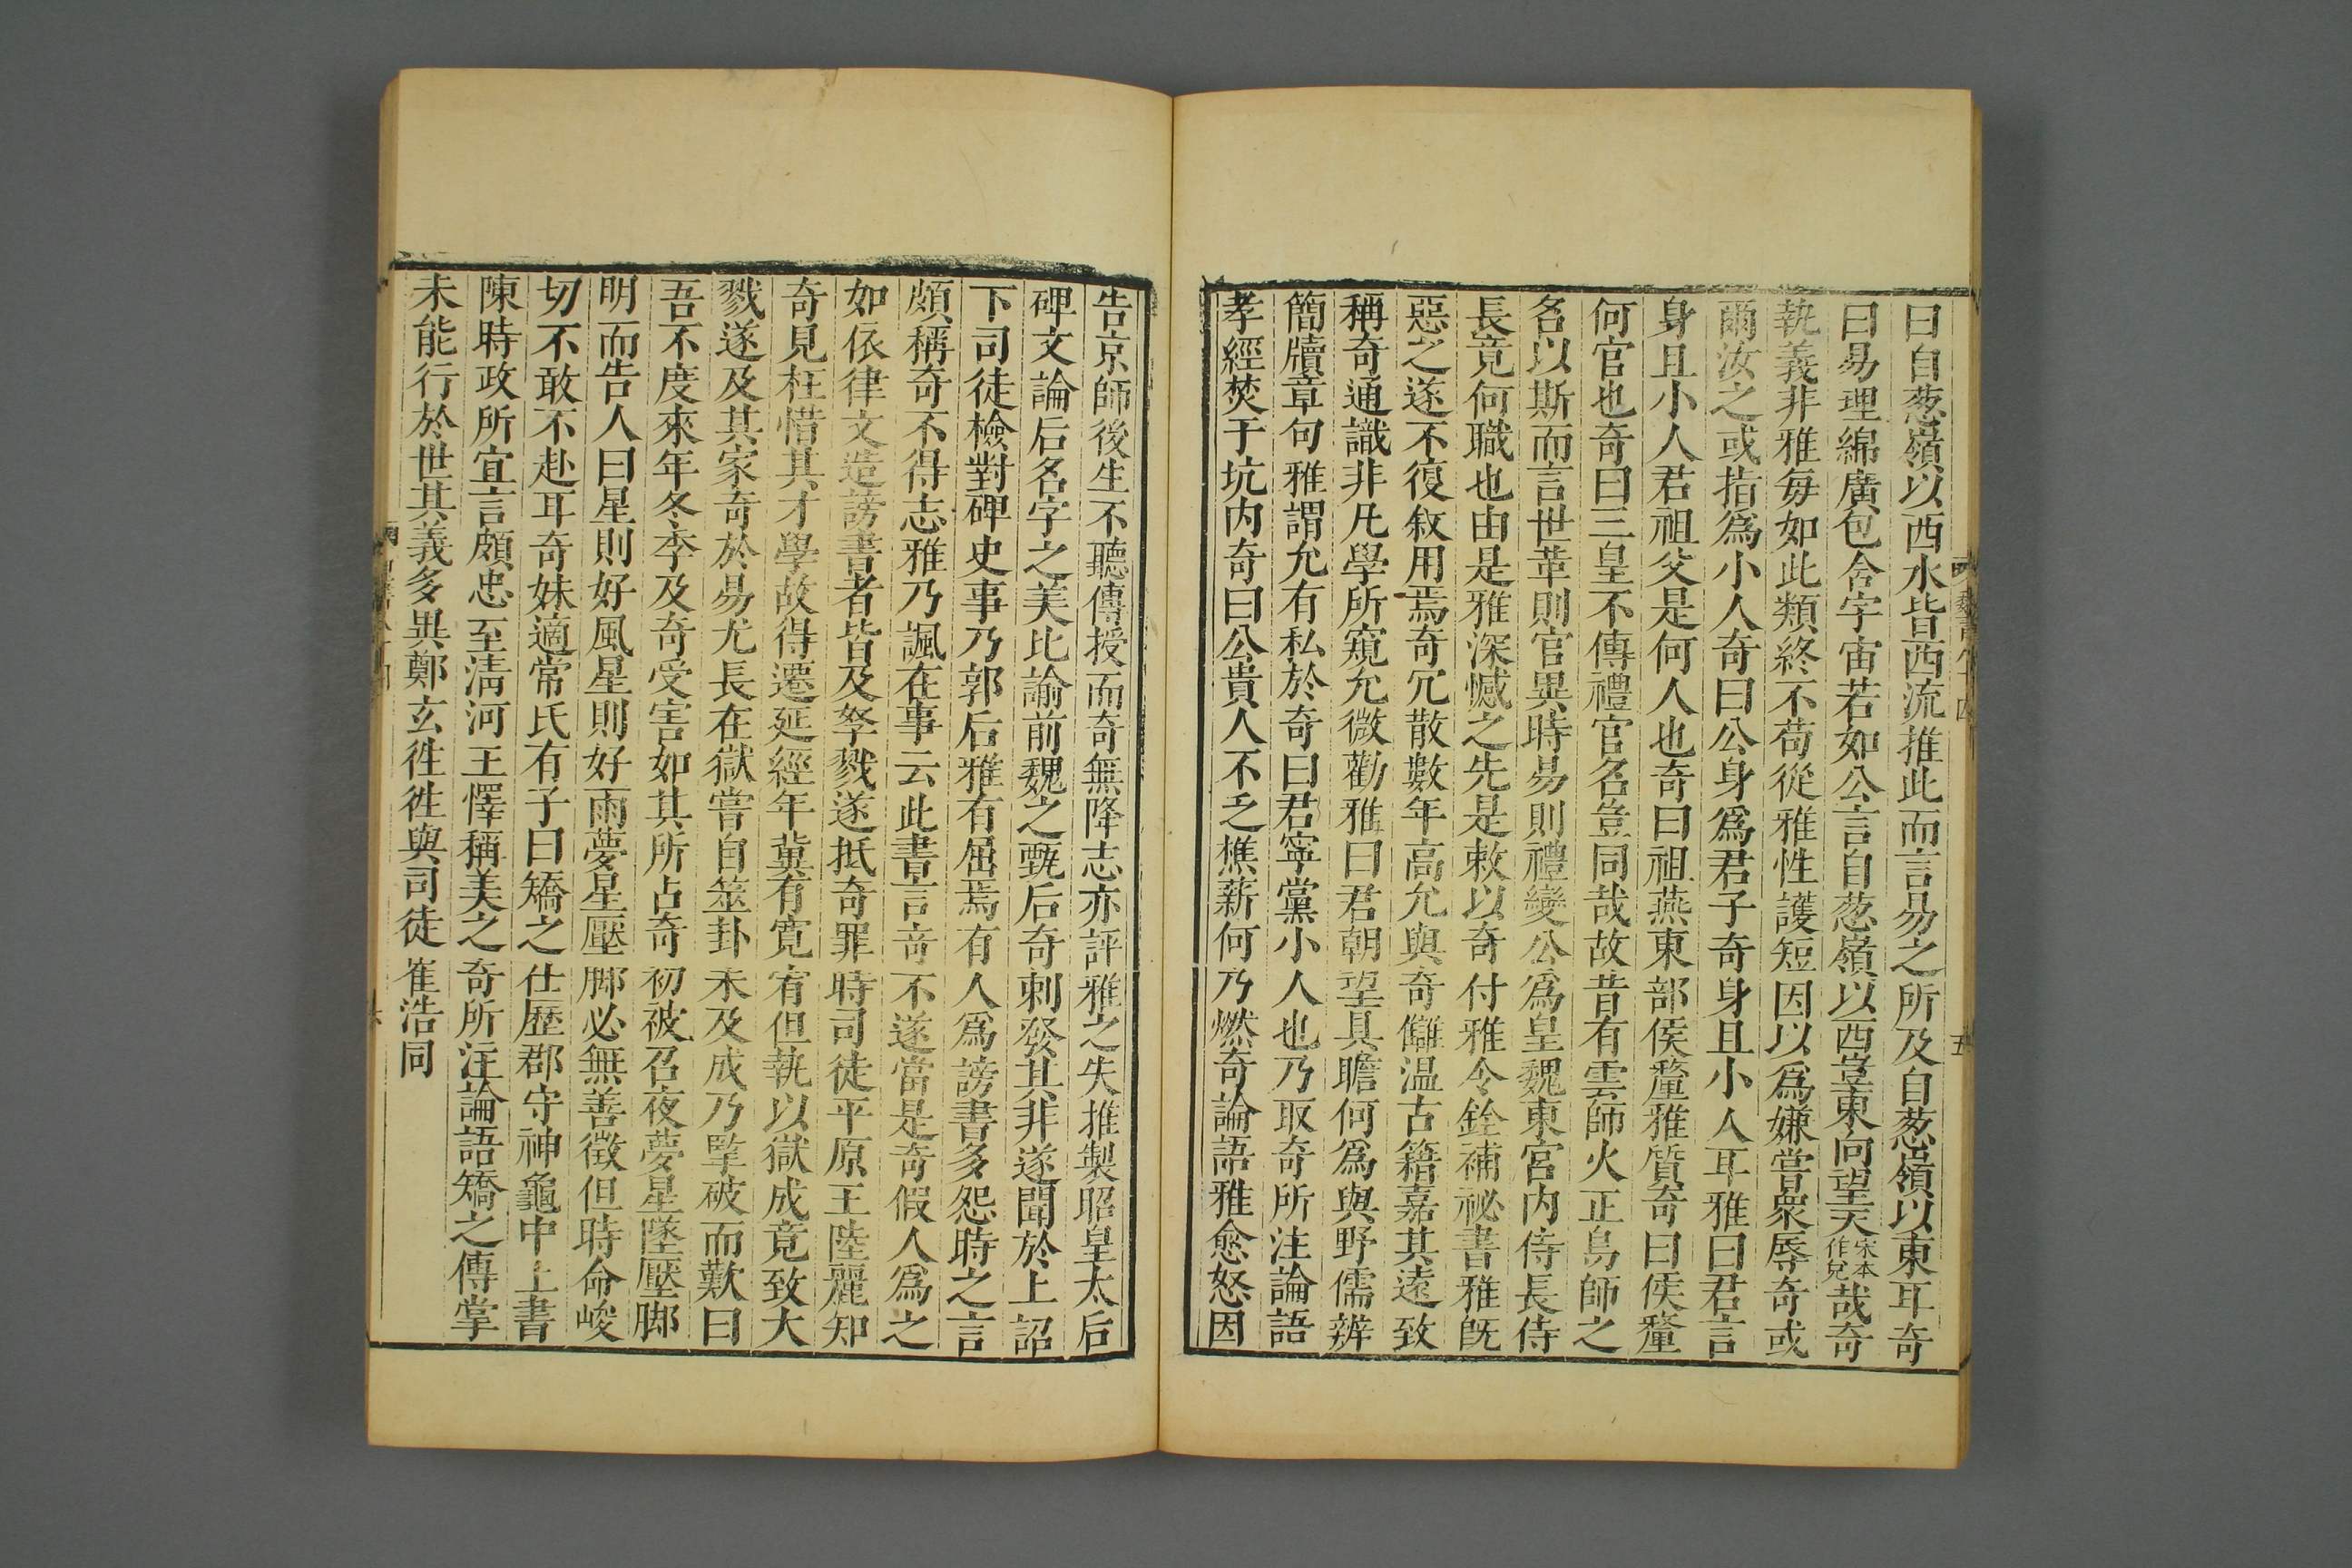 曰自葱嶺以西水皆西流推此而言易之所及自葱嶺以東耳奇
曰易理綿廣包含宇宙若如公言自葱嶺以西豈東向望天宋本作兒哉奇
執義非雅每如此類終不苟從雅性護短因以爲嫌嘗衆辱奇或
爾汝之或指爲小人奇曰公身爲君子奇身且小人耳雅曰君言
身且小人君祖父是何人也奇曰祖燕東部侯釐雅質奇曰侯釐
何官也奇曰三皇不傳禮官名豈同哉故昔有雲師火正鳥師之
名以斯而言世革則官異時易則禮變公爲皇魏東宮內侍長侍
長竟何職也由是雅深憾之先是敕以奇付雅令銓補祕書雅旣
惡之遂不復敘用焉奇冗散數年高允與奇讎温古籍嘉其遠致
稱奇通識非凡學所窺允微勸雅曰君朝望具瞻何爲與野儒辨
簡牘章句雅謂允有私於奇曰君寧黨小人也乃取奇所注論語
孝經焚于坑內奇曰公貴人不乏樵薪何乃燃奇論語雅愈怒因
告京師後生不聽傳授而奇無降志亦評雅之失推製昭皇太后
碑文論后名字之美比諭前魏之甄后奇刺發其非遂聞於上詔
下司徒檢對碑史事乃郭后雅有屈焉有人爲謗書多怨時之言
頗稱奇不得志雅乃諷在事云此書言奇不遂當是奇假人爲之
如依律文造謗書者皆及孥戮遂抵奇罪時司徒平原王陸麗知
奇見枉惜其才學故得遷延經年冀有寬宥但執以獄成竟致大
戮遂及其家奇於易尤長在獄嘗自筮卦未及成乃擥破而歎曰
吾不度來年冬季及奇受害如其所占奇初被召夜夢星墜壓脚
明而告人曰星則好風星則好雨夢星壓脚必無善徵但時命峻
切不敢不赴耳奇妹適常氏有子曰矯之仕歷郡守神龜中上書
陳時政所宜言頗忠至淸河王懌稱美之奇所注論語矯之傳掌
未能行於世其義多異鄭玄徃徃與司徒崔浩同